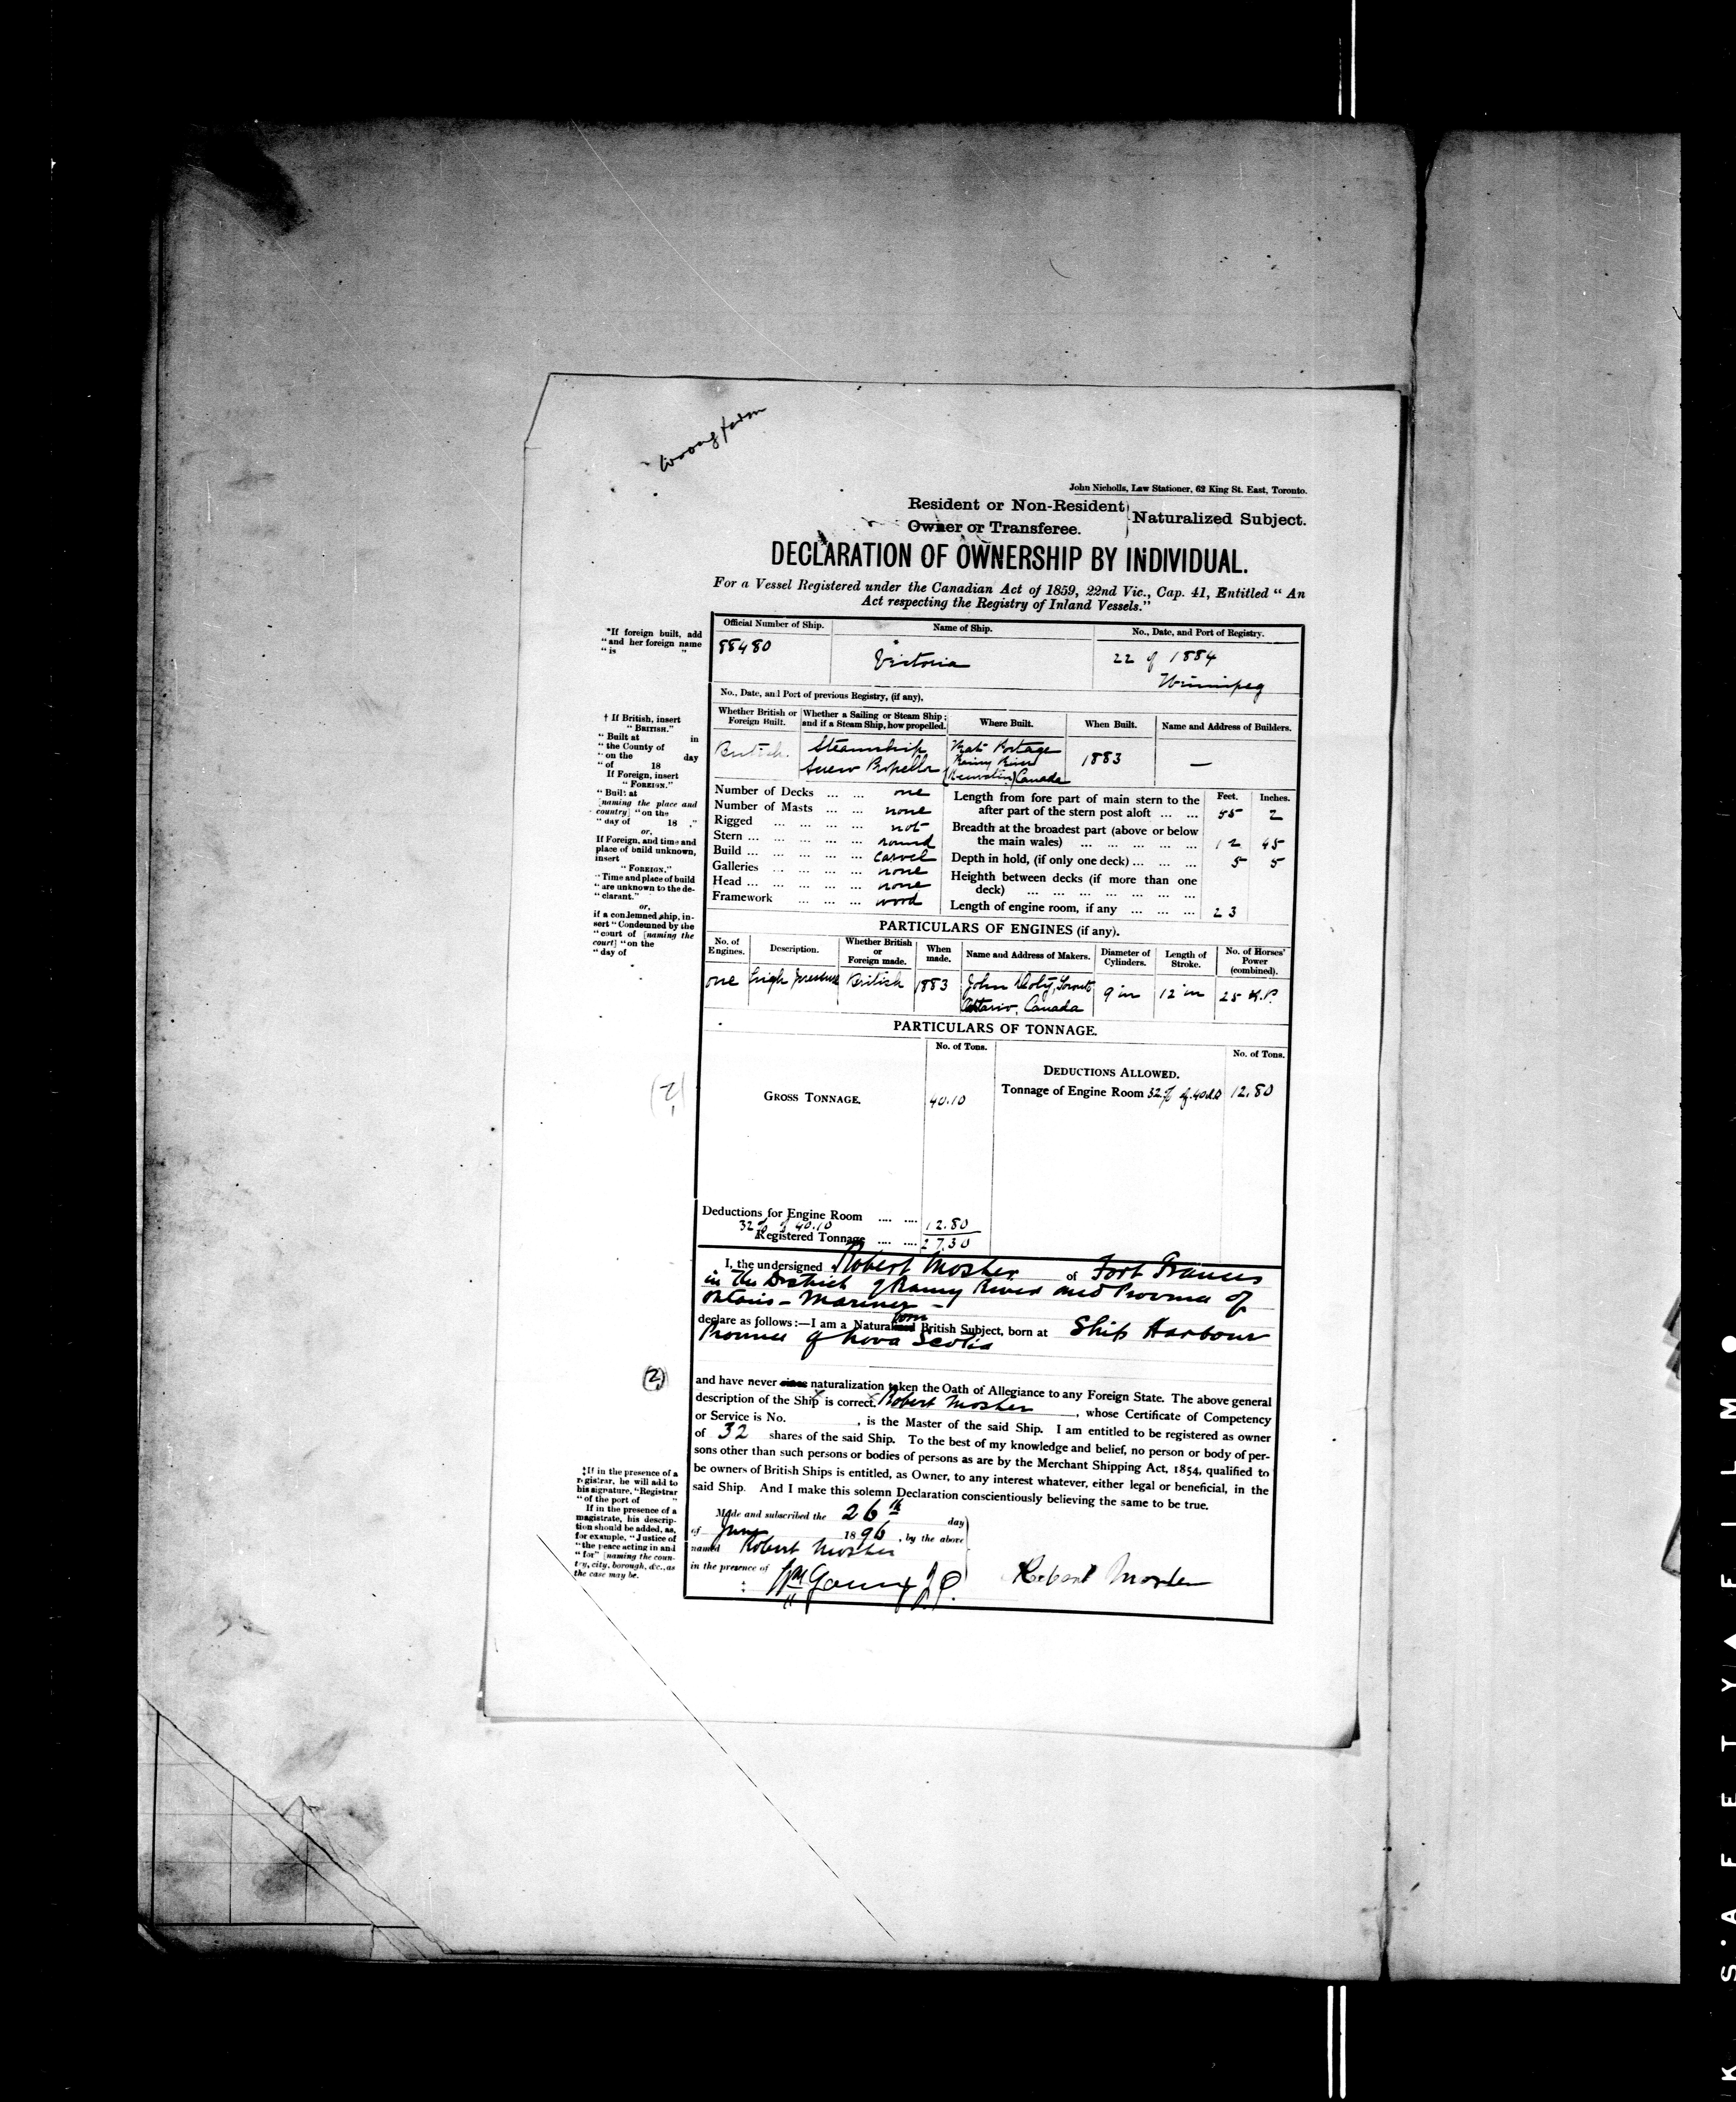 Wrong form
John Nicholls, Law Stationer, 62 King St. East, Toronto.
Resident or Non-Resident
Owner or Transferee.
Naturalized Subject.
DECLARATION OF OWNERSHIP BY INDIVIDUAL.
For a Vessel Registered under the Canadian Act of 1859, 22nd Vic., Cap. 41, Entitled “ An
Act respecting the Registry of Inland Vessels.”
*If foreign built, add
“and her foreign name
“ is ”
Official Number of Ship.
Name of Ship.
No., Date, and Port of Registry.
88480
Victoria
22 of 1884
Winnipeg
No., Date, and Port of previous Registry, (if any),
† If British, insert
“ BRITISH.”
“ Built at in
“ the County of
“ on the day
“ of 18
If Foreign, insert
“ FOREIGN.”
“ Built at
[naming the place and
country] “on the
“ day of 18 .”
or,
If Foreign, and time and
place of build unknown,
insert
“ FOREIGN.”
“ Time and place of build
“ are unknown to the de-
“ clarant.”
or,
if a condemned ship, in-
sert “ Condemned by the
“ court of [naming the
court] “on the
“ day of
Whether British or
Foreign Built.
Whether a Sailing or Steam Ship ;
and if a Steam Ship, how propelled.
Where Built.
When Built.
Name and Address of Builders.
British.
Steamship
Screw Propeller
Rat Portage
Rainy River
(Keewatin) Canada
1883
—
Number of Decks ... ... one
Number of Masts ... ... none
Rigged ... ... ... ... not
Stern ... ... ... ... ... round
Build ... ... ... ... ... carvel
Galleries ... ... ... ... none
Head ... ... ... ... ... none
Framework ... ... ... wood
Feet. Inches.
Length from fore part of main stern to the
after part of the stern post aloft ... ... 55 2
Breadth at the broadest part (above or below
the main wales) ... ... ... ... ... 12 45
Depth in hold, (if only one deck) ... ... ... 5 5
Heighth between decks (if more than one
deck) ... ... ... ... ... ... ...
Length of engine room, if any ... ... ... 23
PARTICULARS OF ENGINES (if any).
No. of
Engines.
Description.
Whether British
or
Foreign made.
When
made.
Name and Address of Makers.
Diameter of
Cylinders.
Length of
Stroke.
No. of Horses’
Power
(combined).
one
high pressure
British
1883
John Doty, Toronto
Ontario, Canada
9 in
12 in
25 H.P.
PARTICULARS OF TONNAGE.
No. of Tons.
No. of Tons.
DEDUCTIONS ALLOWED.
GROSS TONNAGE. 40.10
Tonnage of Engine Room 32% of 40.10 12.80
(2)
Deductions for Engine Room .... .... 12.80
32% of 40.10
Registered Tonnage .... .... 27.30
I, the undersigned Robert Mosher of Fort Frances
in the District of Rainy River and Province of
Ontario - Mariner -
declare as follows :—I am a Natural born British Subject, born at Ship Harbour
Province of Nova Scotia
(2)
and have never since naturalization taken the Oath of Allegiance to any Foreign State. The above general
description of the Ship is correct. Robert Mosher , whose Certificate of Competency
or Service is No. , is the Master of the said Ship. I am entitled to be registered as owner
of 32 shares of the said Ship. To the best of my knowledge and belief, no person or body of per-
sons other than such persons or bodies of persons as are by the Merchant Shipping Act, 1854, qualified to
be owners of British Ships is entitled, as Owner, to any interest whatever, either legal or beneficial, in the
said Ship. And I make this solemn Declaration conscientiously believing the same to be true.
‡If in the presence of a
registrar, he will add to
his signature, “Registrar
“ of the port of ”
If in the presence of a
magistrate, his descrip-
tion should be added, as,
for example, “ Justice of
“ the peace acting in and
“ for” [naming the coun-
try, city, borough, &c., as
the case may be.
Made and subscribed the 26th day
of June 1896 , by the above
named Robert Mosher
in the presence of
Wm Young J.P.
Robert Mosher
K S'A F E T Y ▲ F I L M ●